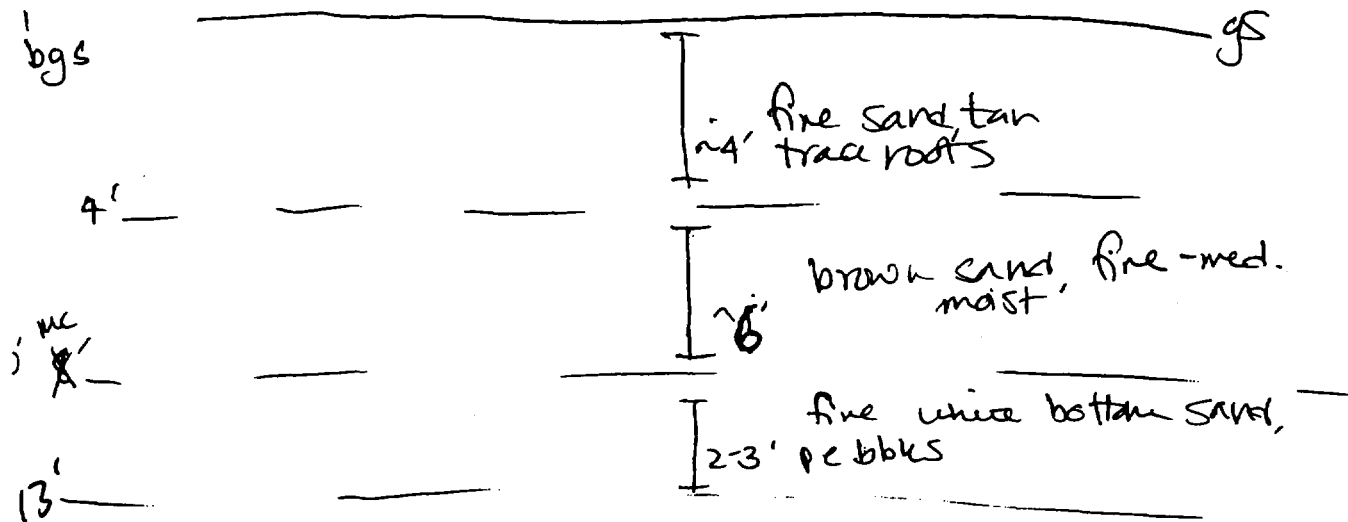 bgs
gs
~4' fine sand, tan
trace roots
4'
brown sand, fine-med.
moist
~6'
MC
fine white bottom sand,
2-3' pebbles
13'